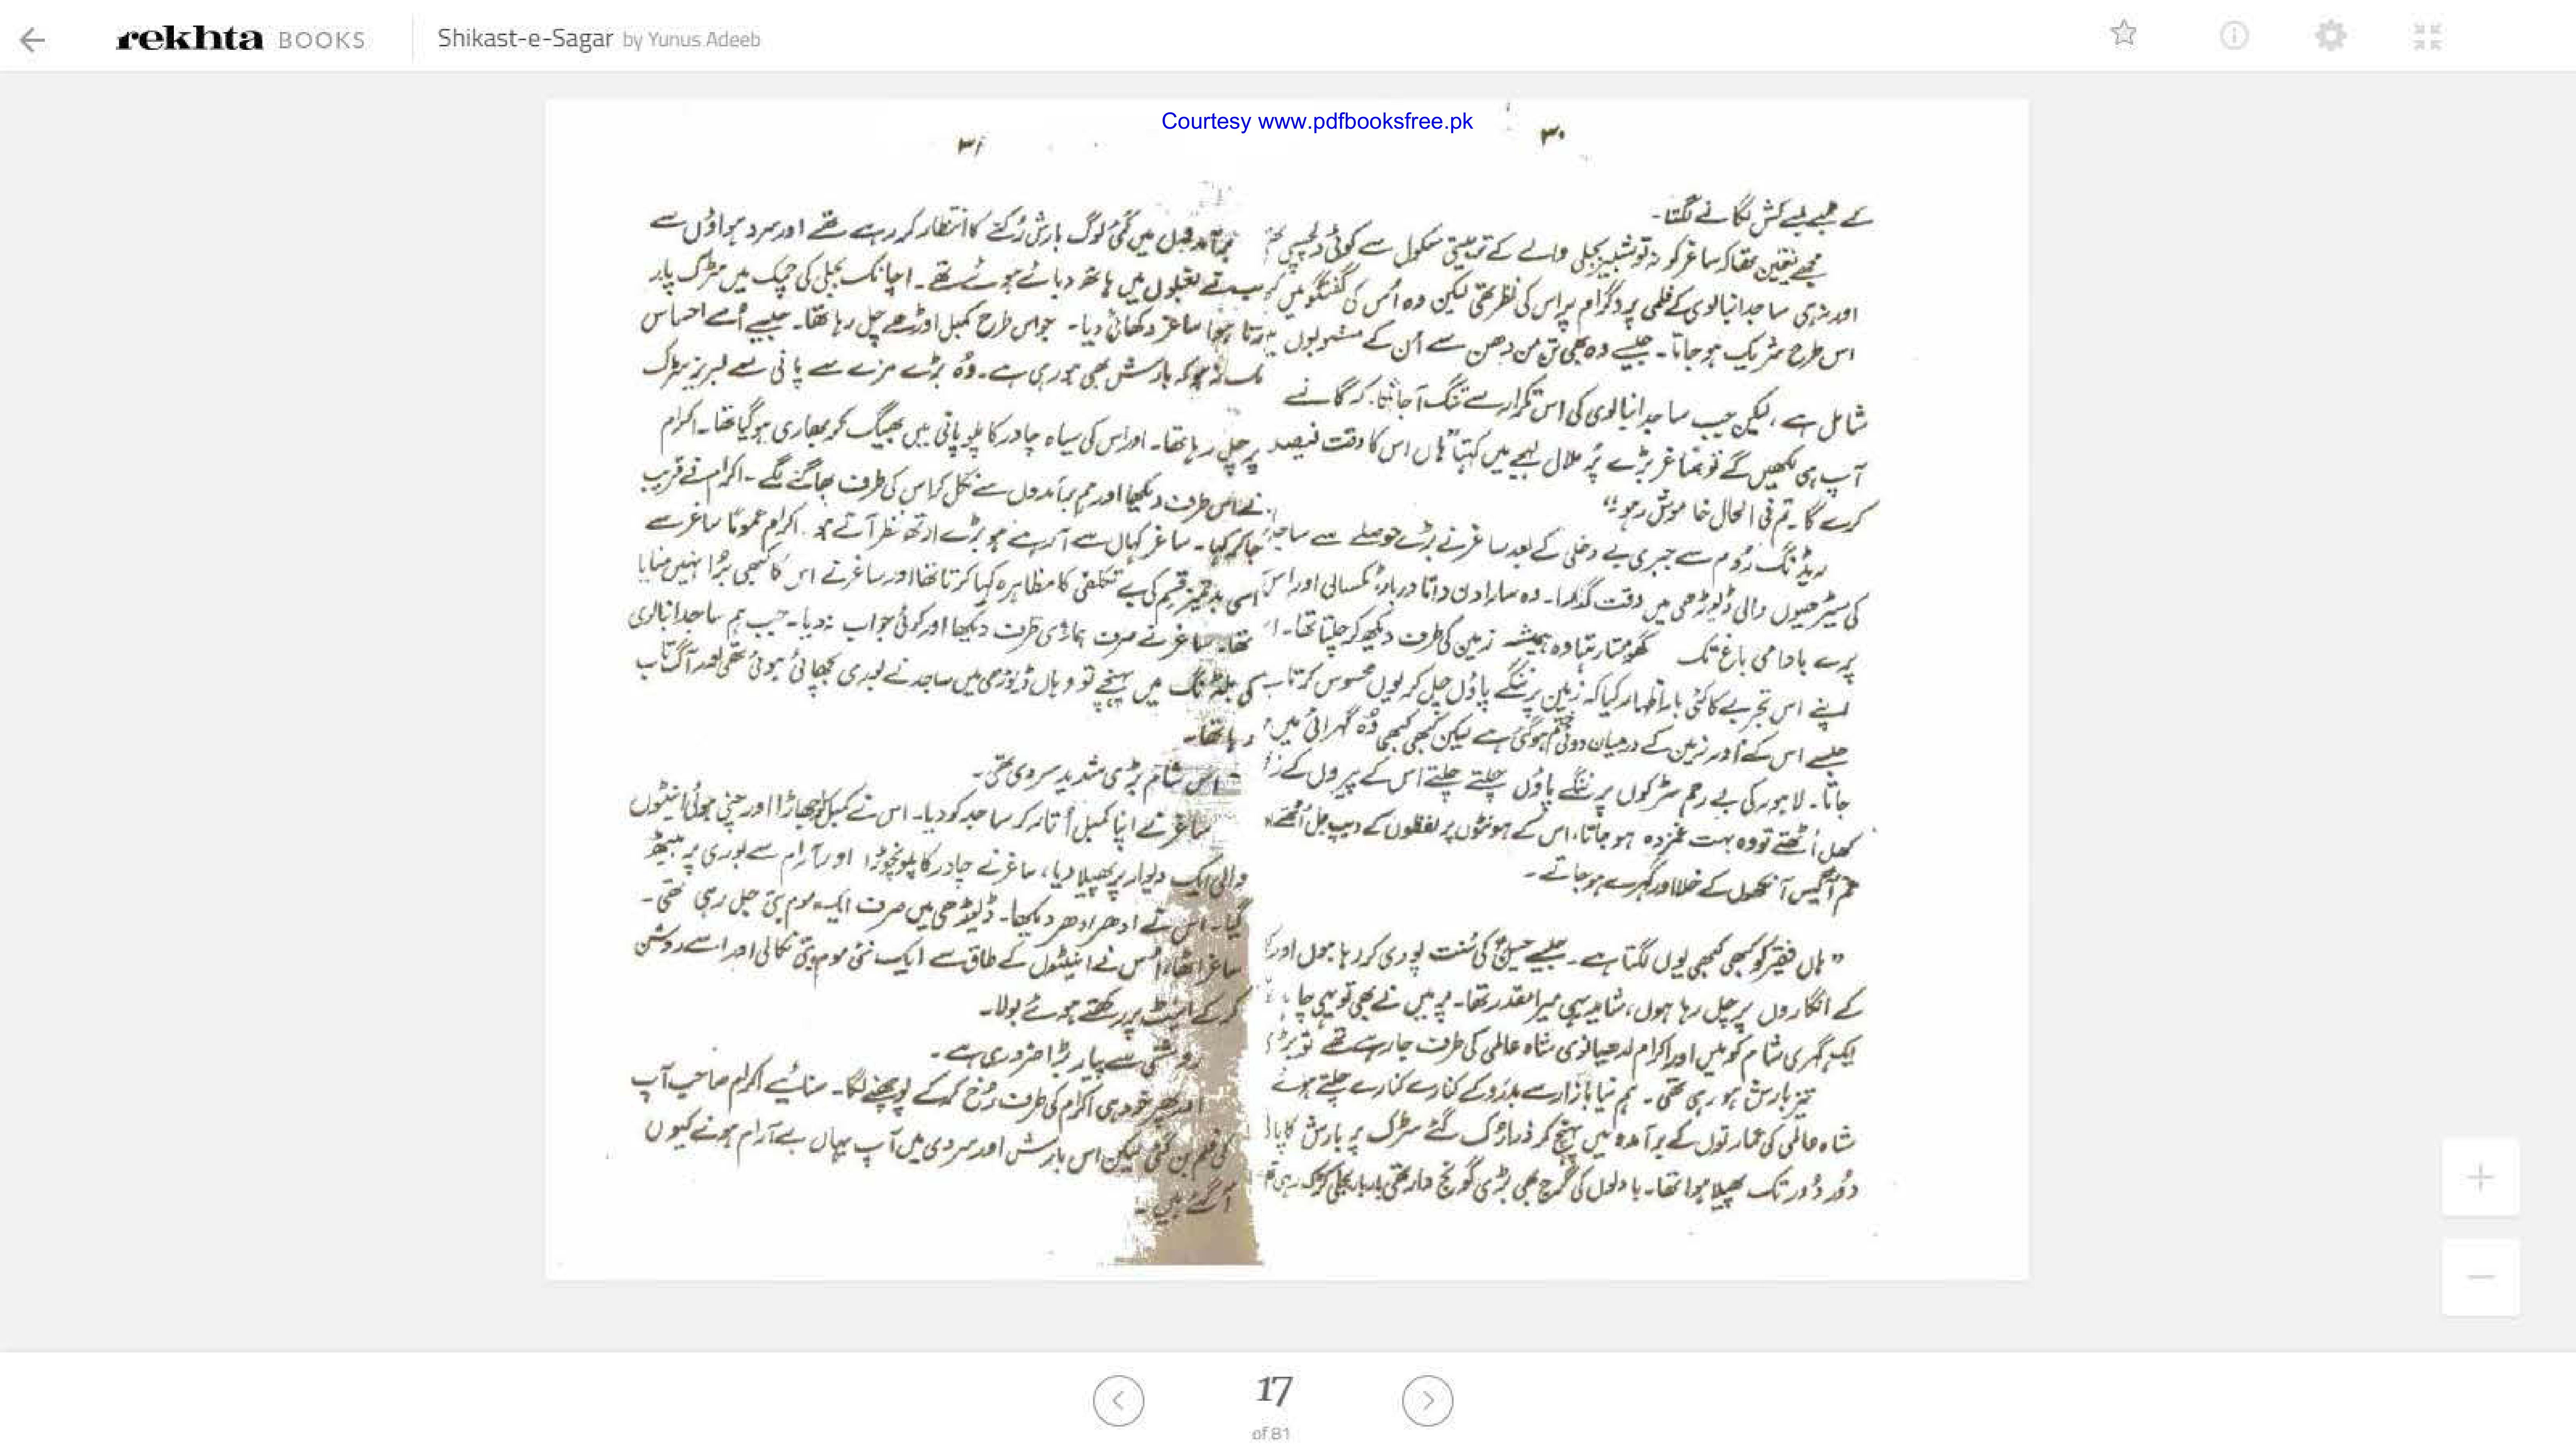 rekhta BOOKS
Shikast-e-Sagar by Yunus Adeeb
Courtesy www.pdfbooksfree.pk
۳۰
کے لمبے لمبے کش لگانے لگتا۔
مجھے یقین تھا کہ ساغر کو نہ تو شبیر بجلی والے کے تربیتی سکول سے کوئی دلچسپی
اور نہ ہی ساجد انبالوی کے فلمی پروگرام پر اس کی نظر تھی لیکن وہ اُس کی گفتگو میں
اس طرح شریک ہو جاتا۔ جیسے وہ بھی تن من دھن سے اُن کے منصوبوں
شامل ہے، لیکن جب ساجد انبالوی کی اس تکرار سے تنگ آ جاتا۔ کہ گانے
آپ ہی لکھیں گے تو ساغر بڑے پُر ملال لہجے میں کہتا "ہاں اس کا وقت فیصلہ
کرے گا۔ تم فی الحال خاموش رہو"
ریڈنگ رُوم سے جبری بے دخلی کے بعد ساغر نے بڑے حوصلے سے ساجد
کی سیڑھیوں والی ڈیوڑھی میں وقت گذارا۔ وہ سارا دن داتا دربار، ٹکسالی اور اس
پرے بادامی باغ تک گھومتا رہتا وہ ہمیشہ زمین کی طرف دیکھ کر چلتا تھا۔
اپنے اس تجربے کا کئی بار اظہار کیا کہ زمین پر ننگے پاؤں چل کر یوں محسوس کرتا
جیسے اس کے اور زمین کے درمیان دوئی ختم ہو گئی ہے لیکن کبھی کبھی وُہ گہرائی میں
جاتا۔ لاہور کی بے رحم سڑکوں پر ننگے پاؤں چلتے چلتے اس کے پیروں کے
کھل اُٹھتے تو وہ بہت غمزدہ ہو جاتا، اس کے ہونٹوں پر لفظوں کے دیپ جل اُٹھتے
غم آگیں آنکھوں کے خلا اور گہرے ہو جاتے۔
"ہاں فقیر کو کبھی کبھی یوں لگتا ہے۔ جیسے حسینؓ کی سُنت پوری کر رہا ہوں اور
کے انگاروں پر چل رہا ہوں، شاید یہی میرا مقدر تھا۔ پر میں نے بھی تو یہی چاہا
ایک گہری شام کو میں اور اکرام لدھیانوی شاہ عالمی کی طرف جا رہے تھے تو بڑی
تیز بارش ہو رہی تھی۔ ہم نیا بازار سے بدرو کے کنارے کنارے چلتے ہوئے
شاہ عالمی کی عمارتوں کے برآمدہ میں پہنچ کر ذرا رُک گئے سڑک پر بارش کا پانی
دُور دُور تک پھیلا ہوا تھا۔ بادلوں کی گرج بھی بڑی گونج دار تھی بار بار بجلی کڑک رہی
۳۱
برآمدوں میں کئی لوگ بارش رُکنے کا انتظار کر رہے تھے اور سرد ہواؤں سے
بغلوں میں ہاتھ دبائے ہوئے تھے۔ اچانک بجلی کی چمک میں سڑک پار
ہوا ساغر دکھائی دیا۔ جو اس طرح کمبل اوڑھے چل رہا تھا۔ جیسے اُسے احساس
تک نہ ہو کہ بارش بھی ہو رہی ہے۔ وُہ بڑے مزے سے پانی سے لبریز سڑک
پر چل رہا تھا۔ اور اس کی سیاہ چادر کا پلو پانی میں بھیگ کر بھاری ہو گیا تھا۔ اکرام
نے اس طرف دیکھا اور ہم برآمدوں سے نکل کر اس کی طرف بھاگنے لگے۔ اکرام نے قریب
جا کر کہا۔ ساغر کہاں سے آ رہے ہو بڑے نظر آتے ہو۔ اکرام عموماً ساغر سے
اسی بدتمیز قسم کی بے تکلفی کا مظاہرہ کیا کرتا تھا اور ساغر نے اس کا کبھی بُرا نہیں منایا
تھا۔ ساغر نے صرف ہماری طرف دیکھا اور کوئی جواب نہ دیا۔ جب ہم ساجد انبالوی
کی بلڈنگ میں پہنچے تو وہاں ڈیوڑھی میں ساجد نے بوری بچھائی ہوئی تھی اور آگ تاپ
رہا تھا۔
اس شام بڑی شدید سردی تھی۔
ساغر نے اپنا کمبل اُتار کر ساجد کو دیا۔ اس نے کمبل کو جھاڑا اور چنی ہوئی اینٹوں
والی ایک دیوار پر پھیلا دیا، ساغر نے چادر کا پلو نچوڑا اور آرام سے بوری پر بیٹھ
گیا۔ اس نے ادھر ادھر دیکھا۔ ڈیوڑھی میں صرف ایک موم بتی جل رہی تھی۔
ساغر اٹھا، اُس نے اینٹوں کے طاق سے ایک نئی موم بتی نکالی اور اسے روشن
کر کے اینٹ پر رکھتے ہوئے بولا۔
روشنی سے پیار بڑا ضروری ہے۔
اور پھر خود ہی اکرام کی طرف رُخ کر کے پوچھنے لگا۔ سنائیے اکرام صاحب آپ
کی فلم بن گئی لیکن اس بارش اور سردی میں آپ یہاں بے آرام ہونے کیوں
آ گئے ہیں۔
17
of 81